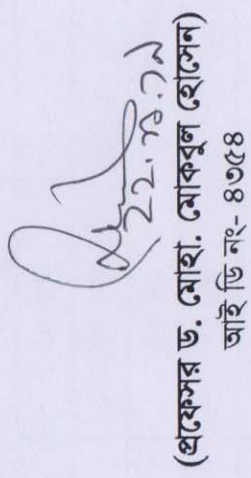 ২২.৪.১৯
(প্রফেসর ড. মোহা. মোকবুল হোসেন)
আই ডি নং- ৪৩৫৪